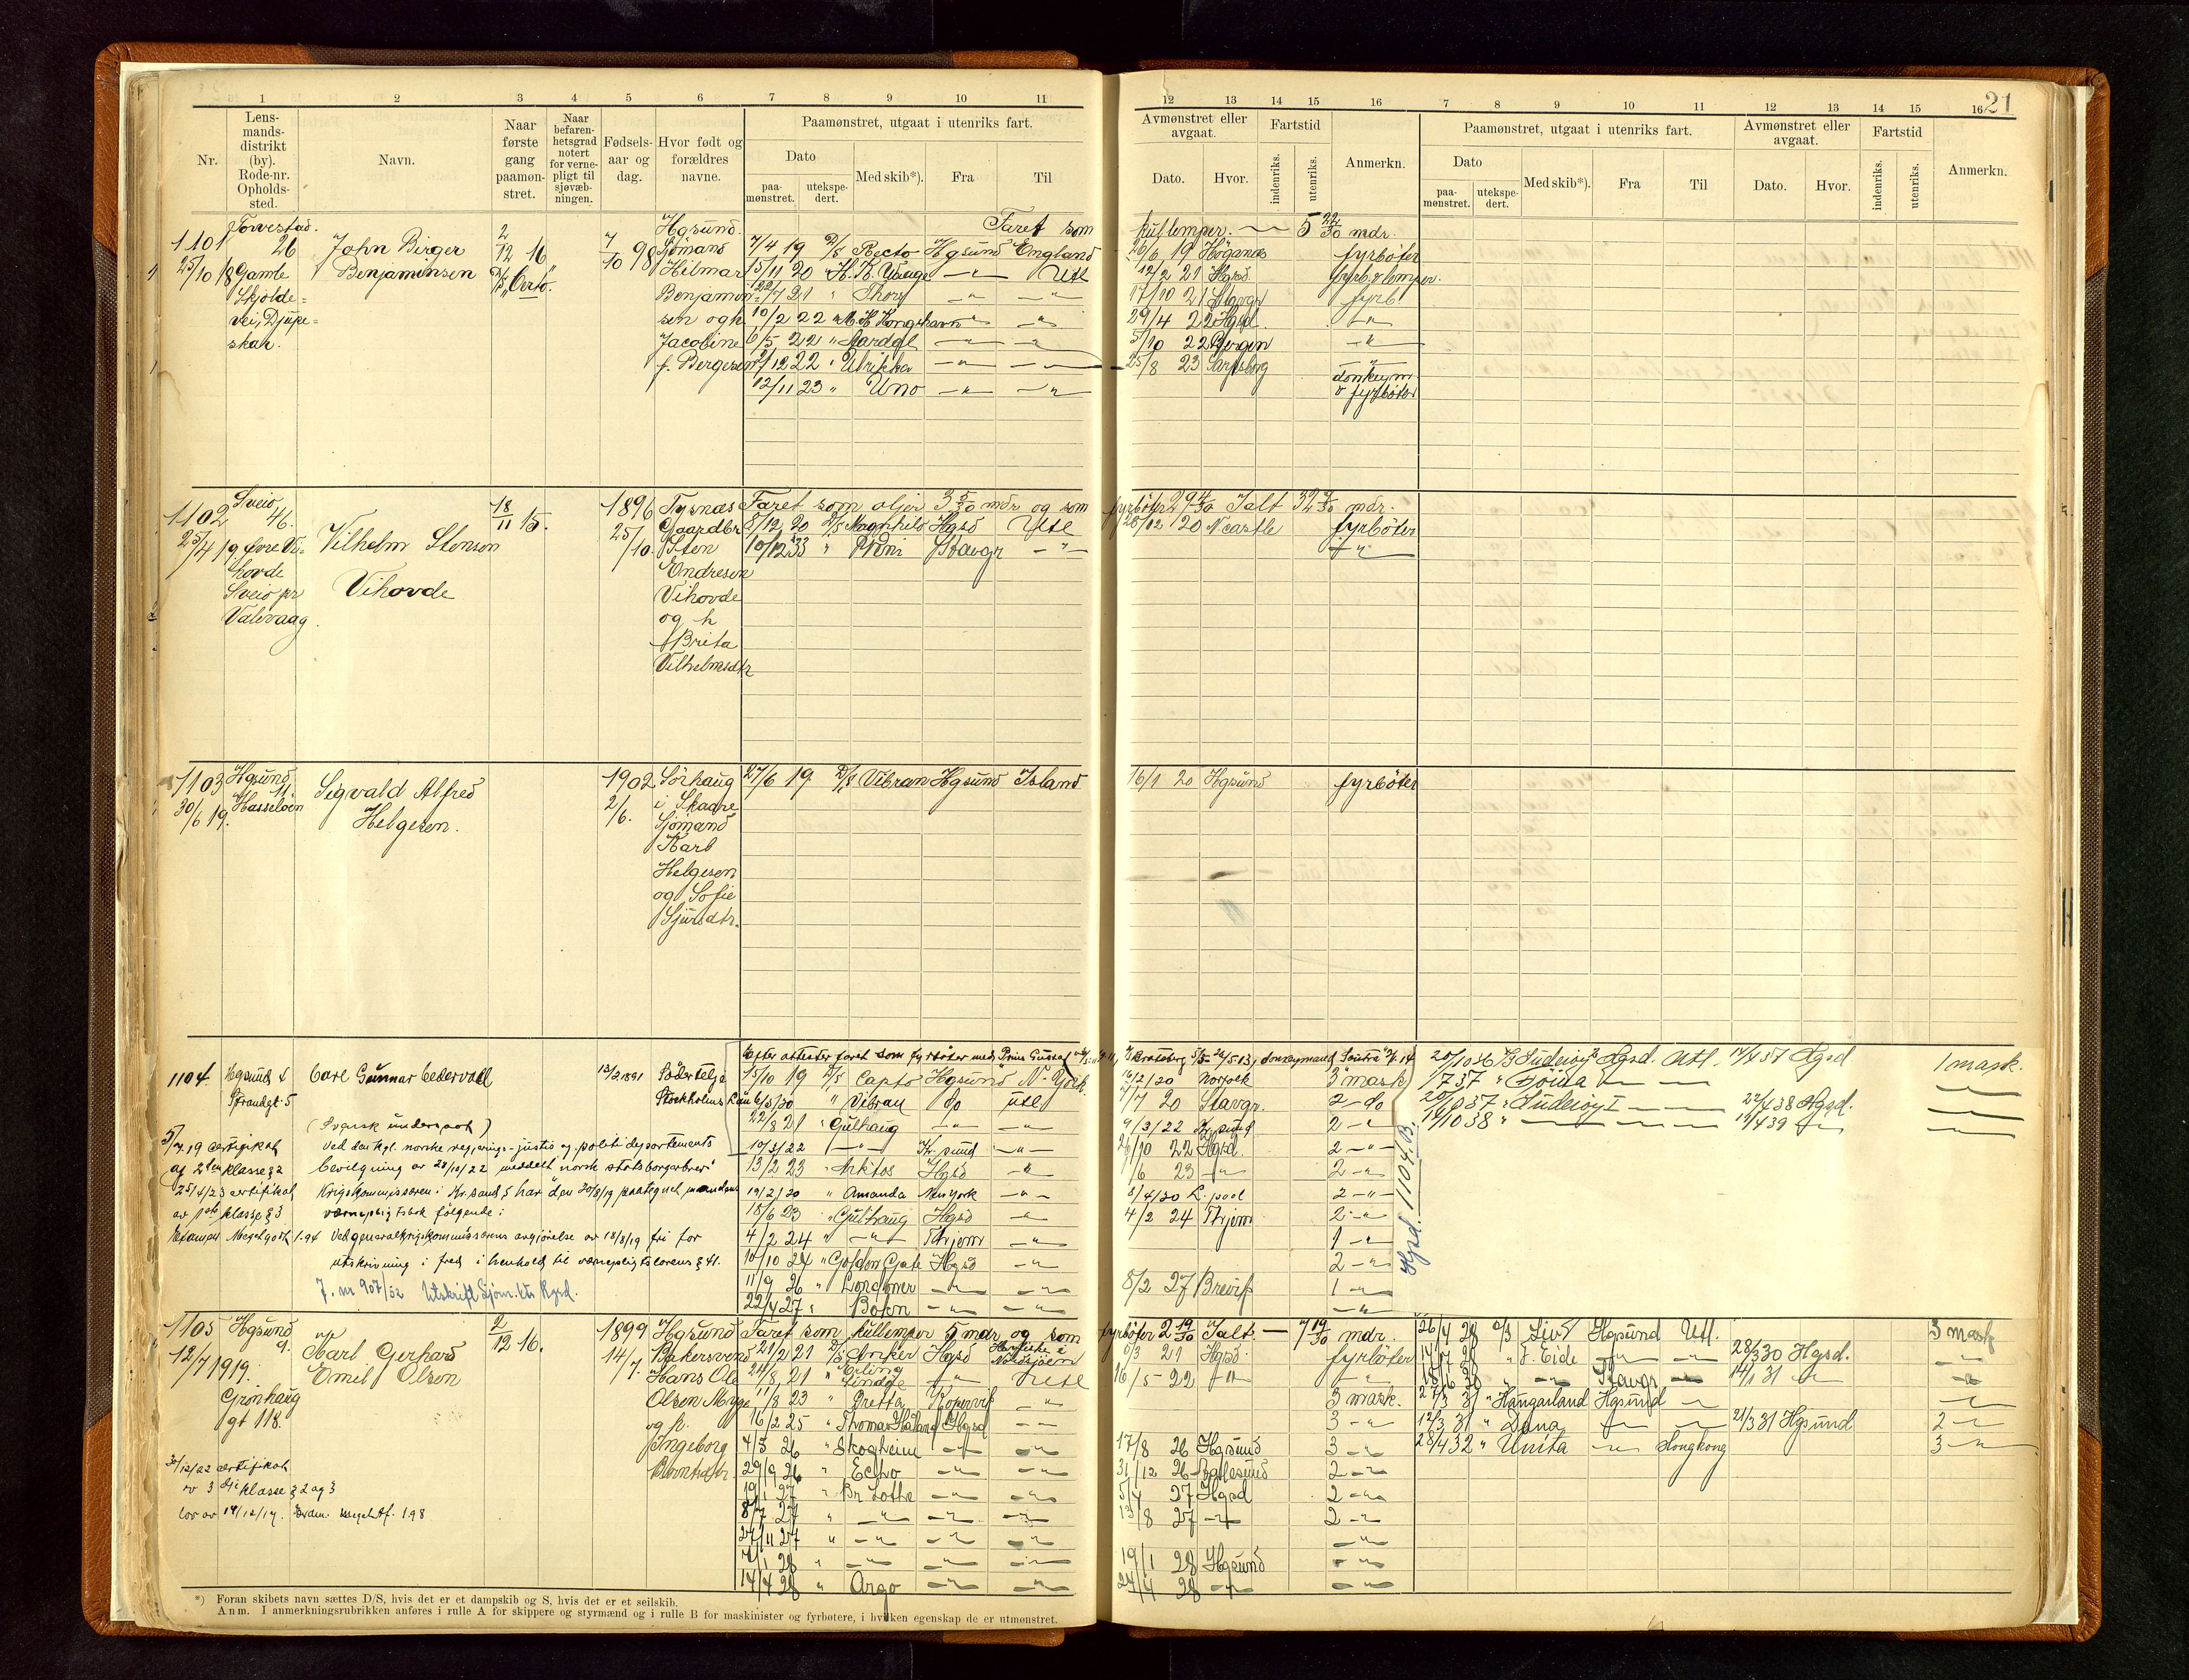 21
1 2 3 4 5 6 7 8 9 10 11
12 13 14 15 16 7 8 9 10 11 12 13 14 15 16
Nr.
Lens-
mands-
distrikt
(by).
Rode-nr.
Opholds-
sted.
Navn.
Naar
første
gang
paamøn-
stret.
Naar
befaren-
hetsgrad
notert
for verne-
pligt til
sjøvæb-
ningen.
Fødsels-
aar og
dag.
Hvor født og
forældres
navne.
Paamønstret, utgaat i utenriks fart.
Dato
paa-
mønstret.
utekspe-
dert.
Med skib*).
Fra
Til
Avmønstret eller
avgaat.
Dato.
Hvor.
Fartstid
indenriks.
utenriks.
Anmerkn.
Paamønstret, utgaat i utenriks fart.
Dato
paa-
mønstret.
utekspe-
dert.
Med skib*).
Fra
Til
Avmønstret eller
avgaat.
Dato.
Hvor.
Fartstid
indenriks.
utenriks.
Anmerkn.
1101
25/10 18
Torvestad.
26
Gamle
Skjolde=
vei, Djupe=
skar.
John Birger
Benjaminsen
2/12 16
7/10 98
Hgsund.
Sjømand
Hilmar
Benjamin=
sen og h.
Jacobine
f. Bergesen
Faret som kullemper. 5 22/30 mdr.
7/4 19 D/S Recto Hgsund England 26/6 19 Höganäs fyrbøter
15/11 20 " — " — Utl 12/2 21 Hgsd. fyrb. & lemper.
22/7 21 " Thory — " — — " — 17/10 21 fyrb
10/2 22 Kongshavn — " — — " — 29/4 22 Hgsd. — " —
6/5 22 " — " — — " — 5/10 22 Bergen — " —
/12 22 " Ulrikka — " — — " — 25/8 23 Sarpsborg — " —
12/11 23 " Uno — " — — " — donkeym
& fyrbøter
1102
25/4 19.
Sveio
46.
Øvre Vi=
hovde
Sveio pr
Valevaag.
Vilhelm Stenson
Vihovde
18/11 15.
1896
25/10.
Tysnes
Gaardbr
Sten
Endresen
Vihovde
og h
Brita
Vilhelmsdtr
Faret som oljer 3 5/30 mdr og som fyrbøter 29 4/30 Ialt 32 9/30 mdr.
8/12 20 D/S Ragnhild Hgsd Utl 28/12 20 Ncastle fyrbøter
10/12 33 " Stavgr — " — — " —
1103
30/6 19.
Hgsund
11.
Hasseløen
Sigvald Alfred
Helgesen.
1902
2/6.
Sörhaug
i Skaare
Sjømand
Karl
Helgesen
og Sofie
Sjursdtr.
27/6 19 D/S Vibran Hgsund Island 16/1 20 Hgsund fyrbøter
1104.
Hgsund 4
Strandgt. 5
Carl Gunnar Cedervall
(Svensk undersaat)
13/2 1891
Södertelje
Stockholms Län
Efter attester faret som fyrbøter med Prins Gustaf
15/10 19 D/S Capto Hgsund N-York. 16/2/20 Norfolk 3 mask
6/5/20 " Vibran do utl /7 20 Stavgr. 2 — do
22/8 21 " Gulhaug — " — — " — 9/3/22 Kr.sund 2 — " —
10/3/22 — " — Kr.sund — " — 26/10 22 Hgsd. 2 — " —
13/2 23 " Hgsd — " — /6 23 — " — 2 — " —
19/2/20 " Amanda New York — " — 8/4/20 L.pool 2 — " —
18/6 23 " Gulhaug Hgsd — " — 4/2 24 Thjem 2 — " —
4/2 24 " — " — Thjem — " — 1 — " —
10/10 24 " Golden Gate Hgsd — " — 2 — " —
11/9 26 " Londoner — " — — " — 8/2 27 Brevik 1 — " —
22/4 27 " Botn — " — — " — — " —
Hgsd. 1104.B.
20/10 36 Suderøy Hgsd. Utl. 14/4 37 Hgsd 1 mask.
1/7 37 " — " — — " — — " —
20/10 37 " Suderøy I — " — — " — 22/4 38 Hgsd. — " —
14/10 38 " — " — — " — 19/4 39 — " — — " —
5/7.19 Certifikat
af 2den klasse § 2
25/4/23 certifikat
av 1ste klasse § 3
Examen Mcgelgodt 1.94
Ved den kgl. norske regjerings-justis og politidepartements
bevilgning av 28/10/22 meddelt norsk statsborgerbrev.
Krigskommissæren i Kr.sand S har den 20/8/19 paategnet mandens
vernepligtsbok følgende:
Ved generalkrigskommissærens avgjørelse av 18/8/19 fri for
utskrivning i fred i henhold til vernepligtslovens § 41.
J. nr 907/52 Utskrift Sjøm.ktr Hgsd.
1105
12/7 1919.
Hgsund
9.
Grønhaug
gt 118.
Karl Gerhard
Emil Olsen
2/12 16.
1899
14/7.
Hgsund
Bakersvend
Hans Ole
Olsen Myge
og h.
Ingeborg
Berntsdtr.
30/12/22 certifikat
av 3die klasse § 2 og 3
lov av 14/12/17. Exam. Meget tf. 1.98
Faret som kullemper 5 mdr og som fyrbøter 2 19/30 Ialt — 7 19/30 mdr.
21/2 21 D/S Anker Hgsd Havfiske i Nordsjøen 6/3 21 Hgsd. fyrbøter
/8 21 " Erling Lindøe — " — Utl 16/5 22 — " — — " —
11/8 23 " Gretta Kopervik — " — 3 mask.
16/2 25 " Thomas Haaland Hgsd — " — 3 — " —
4/3 26 " Skogheim — " — — " — 17/8 26 Hgsund 3 — " —
29/9 26 " Echo — " — — " — 31/12 26 2 — " —
19/1 27 " Br Lothe — " — — " — 5/4 27 Hgsd 2 — " —
8/7 27 " — " — — " — — " — 13/8 27 — " — 2 — " —
24/11 27 " — " — — " — — " — — " —
/1 28 " — " — — " — — " — 19/1 28 Hgsund — " —
14/4 28 " Argo — " — — " — 24/4 28 — " — — " —
26/4 28 D/S Liv Hgsund Utl. 3 mask
14/7 28 " J. Eide — " — — " — 28/3 30 Hgsd. — " —
18/6 30 " — " — Stavgr — " — 14/1 31 — " — — " —
27/3 31 " Haugarland Hgsund — " — — " —
12/3 31 " Dana — " — — " — 21/3 31 Hgsund 2 — " —
28/4 32 " Unita — " — Hongkong 3 — " —
*) Foran skibets navn sættes D/S, hvis det er et dampskib og S, hvis det er et seilskib.
Anm. I anmerkningsrubrikken anføres i rulle A for skippere og styrmænd og i rulle B for maskinister og fyrbøtere, i hvilken egenskap de er utmønstret.